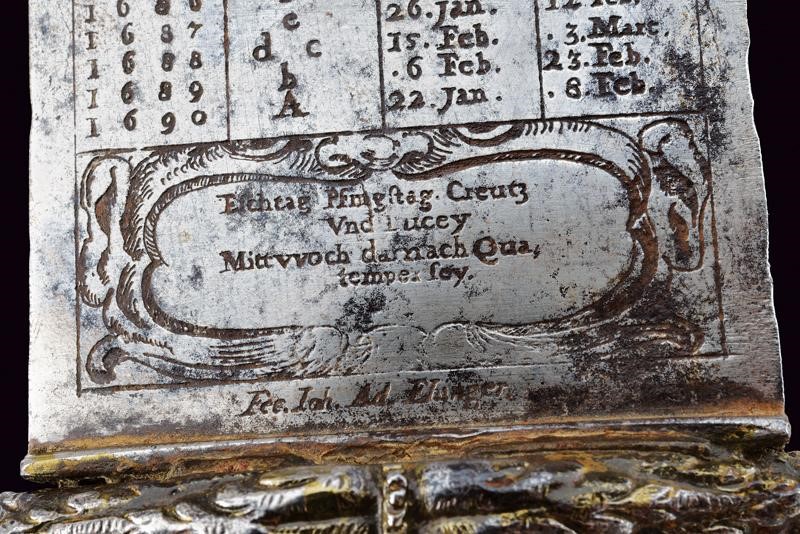 1 6 8 6 e 26. Jan. 12. Feb.
1 6 8 7 d c 15. Feb. . 3. Mart.
1 6 8 8 b .6 Feb. 23. Feb.
1 6 8 9 A 22. Jan. . 8. Feb.
1 6 9 0
Eschtag Pfingstag Creutz
Vnd Lucey
Mittvvoch darnach Qua,
temper sey.
Fec. Joh. Ad.